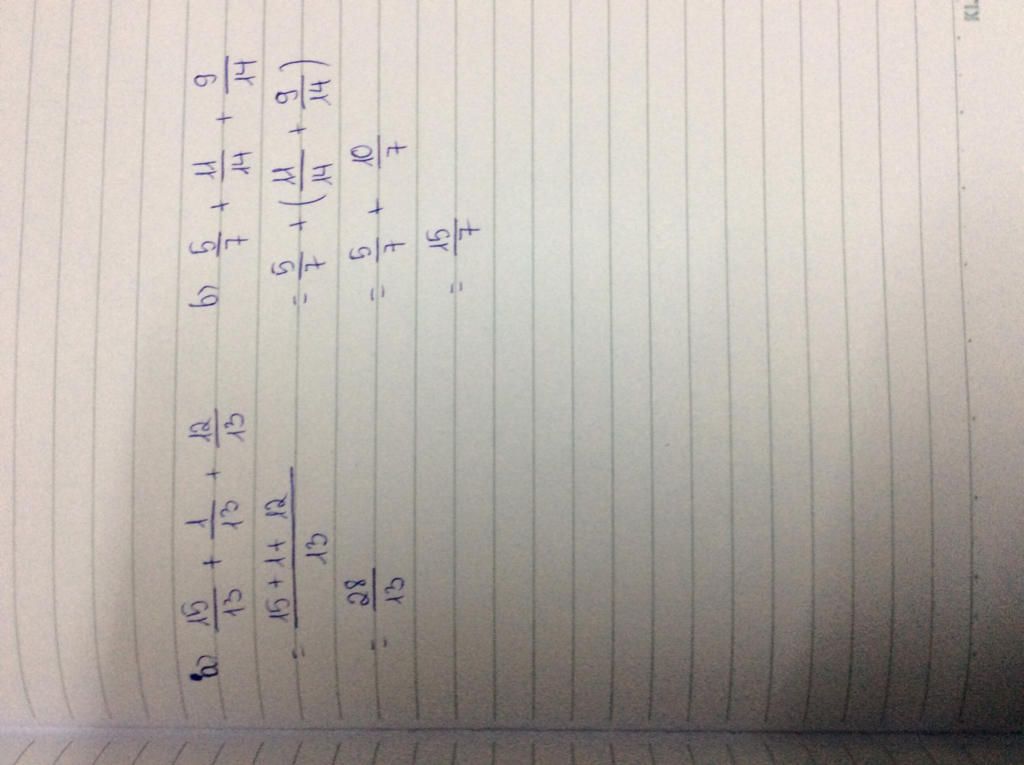 a) 15/13 + 1/13 + 12/13
= (15 + 1 + 12)/13
= 28/13
b) 5/7 + 11/14 + 9/14
= 5/7 + (11/14 + 9/14)
= 5/7 + 10/7
= 15/7